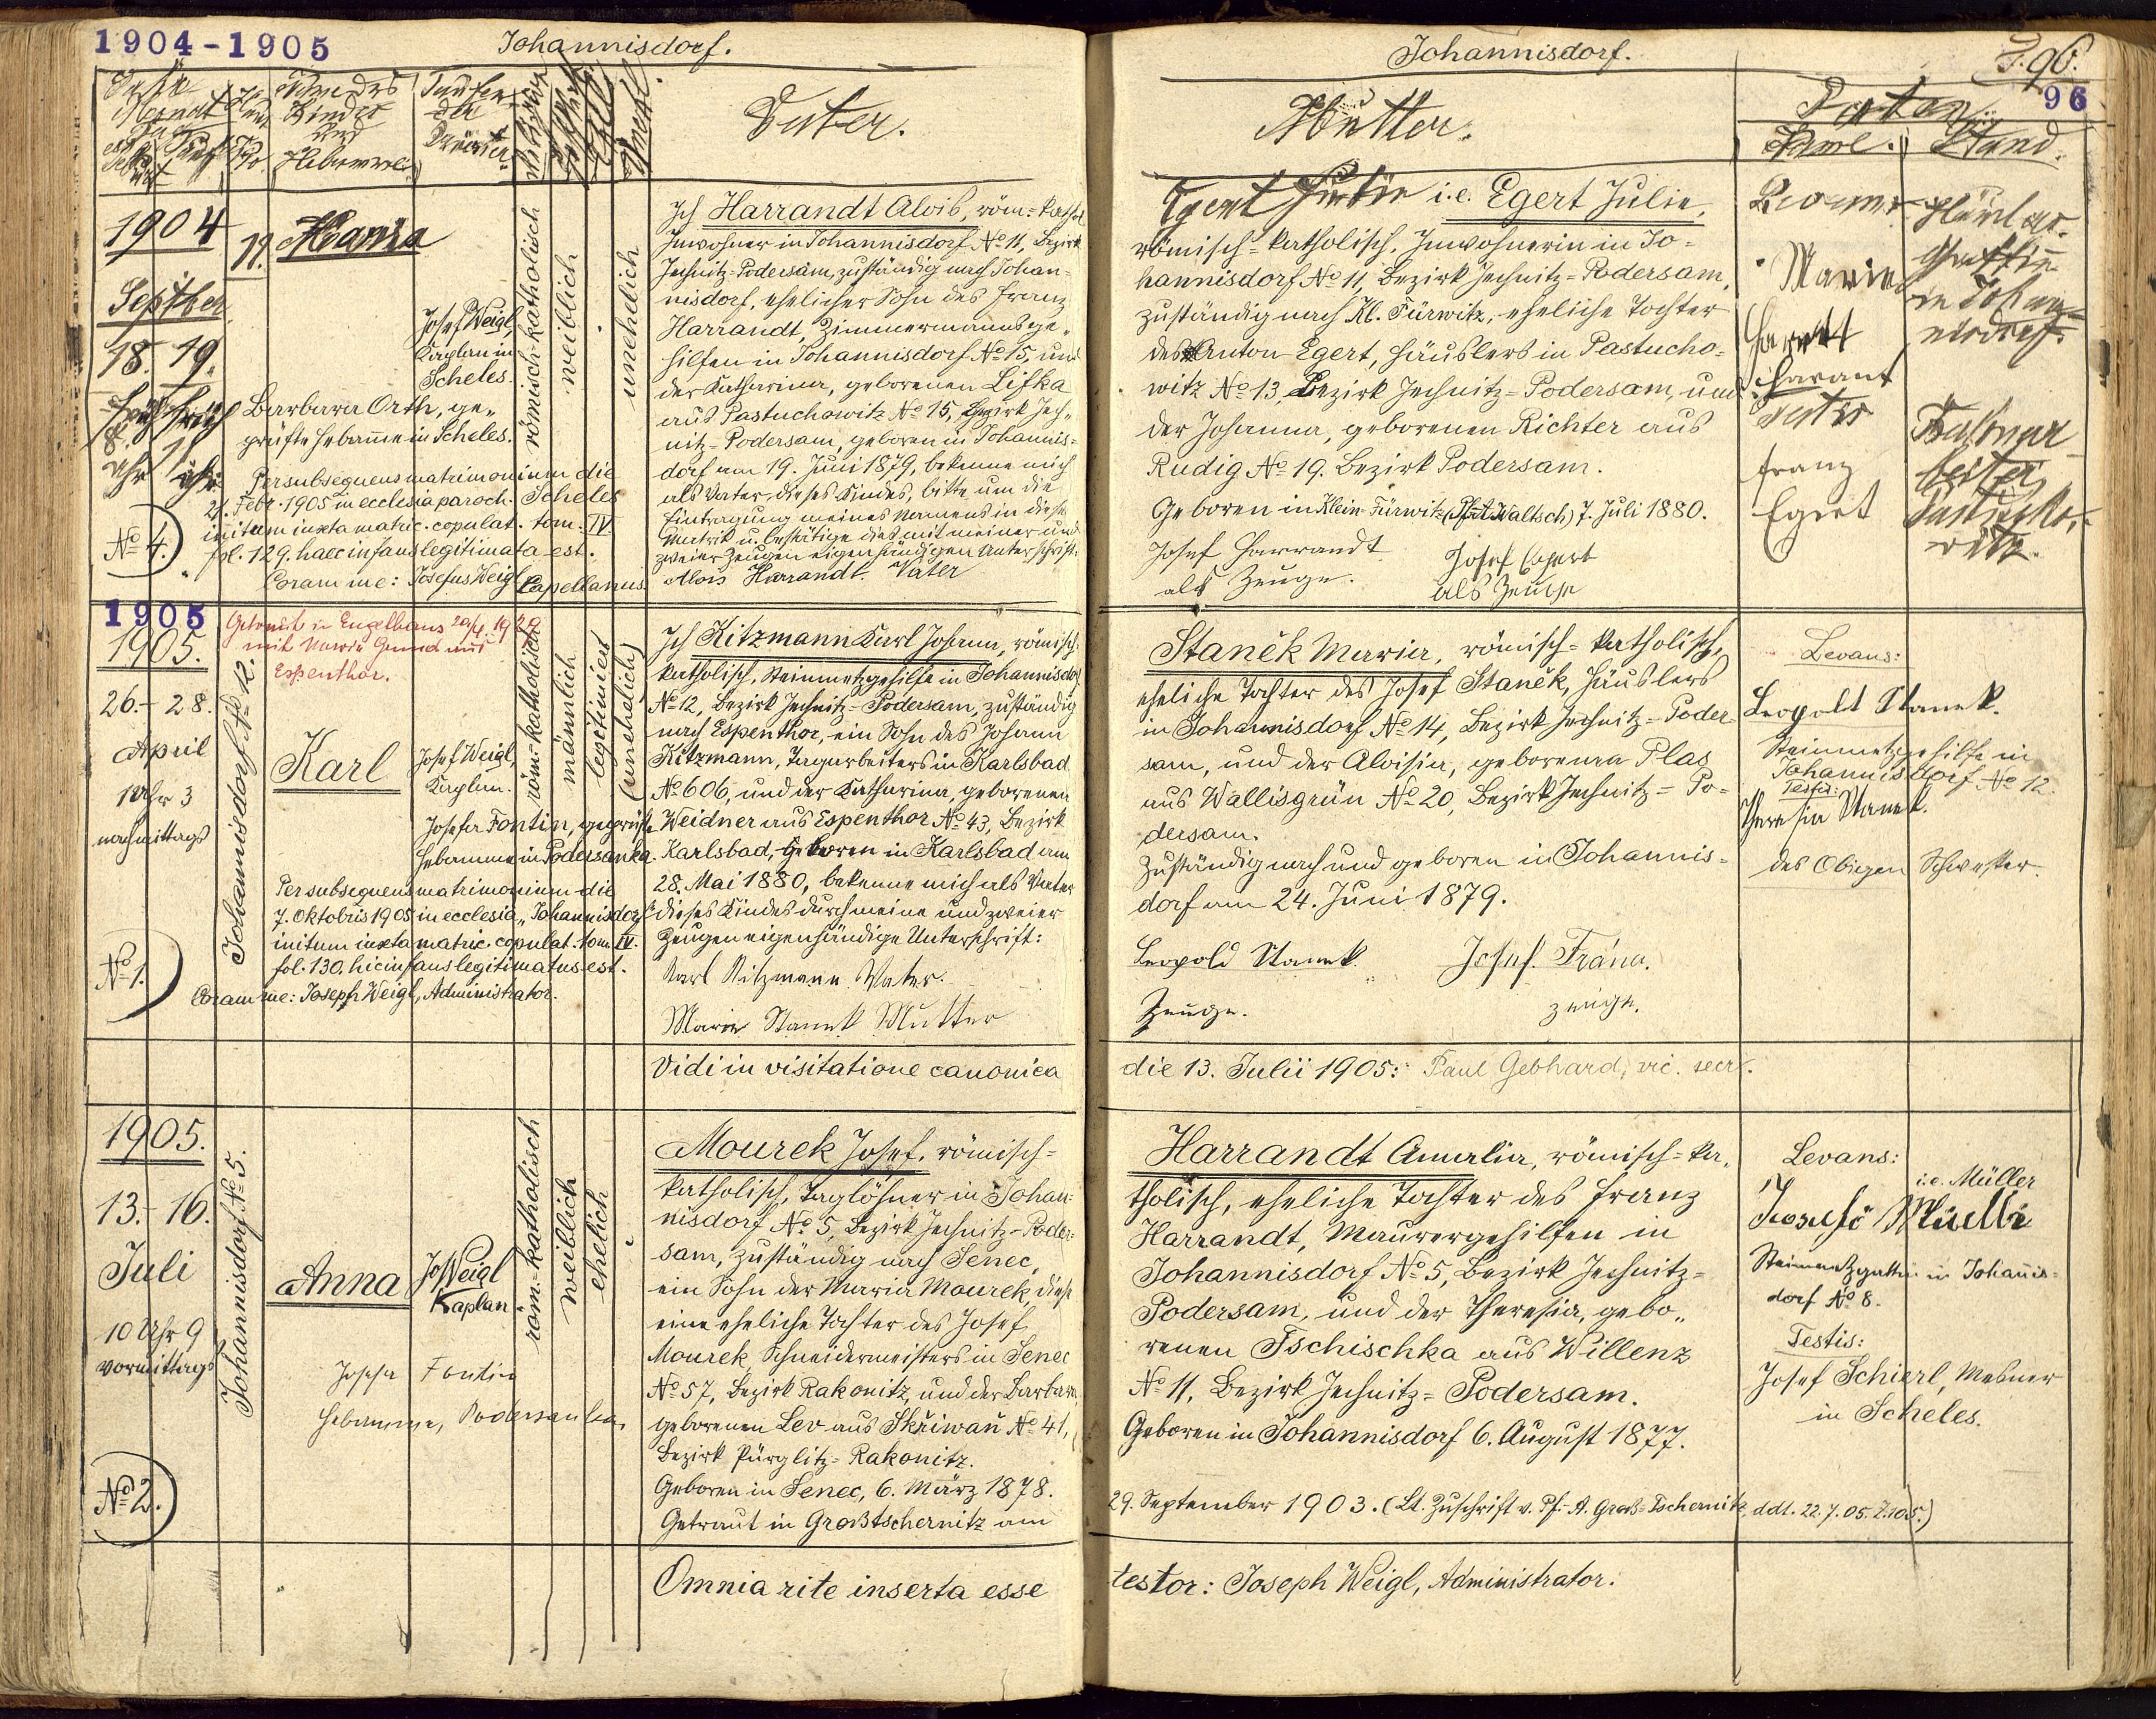 1904-1905
Johannisdorf.
Name des
Kindes
Und
Hebamme.
Taufen
der
Priester
Vater.
1904
Septber
18. 19.
früh
8.
Uhr
No 4.
11.
Maria
Josef Weigl,
Kaplan in
Scheles.
Barbara Orth, ge-
prüfte Hebamme in Scheles.
römisch-katholisch
weiblich
unehelich
Per subsequens matrimonium die
21. Febr. 1905 in ecclesia paroch. Scheles
initum iuxta matric. copulat. tom. IV
fol. 129. haec infans legitimata est.
Coram me: Josefus Weigl Capellanus.
Ich Harrandt Alois, röm=kathol
Inwohner in Johannisdorf No 11, Bezirk
Jechnitz=Podersam, zuständig nach Johan-
nisdorf, ehelicher Sohn des Franz
Harrandt, Zimmermannsge-
hilfen in Johannisdorf No 15, und
der Katharina, geborenen Lifka
aus Pastuchowitz No 15, Bezirk Jech-
nitz=Podersam, geboren in Johannis-
dorf am 19. Juni 1879, bekenne mich
als Vater dieses Kindes, bitte um die
Eintragung meines Namens in diese
Matrik u. bestätige dies mit meiner und
zweier Zeugen eigenhändigen Unterschrift:
Alois Harrandt Vater
1905
1905.
26.- 28.
April
1 Uhr 3
nachmittags
No 1.
Johannisdorf No 12.
Getraut in Engelhaus 20/4. 1929
mit Maria Grund aus
Espenthor.
Karl
Josef Weigl,
Kaplan.
Josefa Fontin, geprüfte
Hebamme in Podersanka.
röm=katholisch
männlich
legitimiert
(unehelich)
Per subsequens matrimonium die
7. Oktobris 1905 in ecclesia „Johannisdorf“
initum iuxta matric. copulat. tom. IV.
fol. 130. hic infans legitimatus est.
Coram me: Joseph Weigl, Administrator.
Ich Kitzmann Karl Johann, römisch-
katholisch, Steinmetzgehilfe in Johannisdorf
No 12, Bezirk Jechnitz=Podersam, zuständig
nach Espenthor, ein Sohn des Johann
Kitzmann, Tagarbeiters in Karlsbad
No 606, und der Katharina, geborenen
Weidner aus Espenthor No 43, Bezirk
Karlsbad, geboren in Karlsbad am
28. Mai 1880, bekenne mich als Vater
dieses Kindes durch meine und zweier
Zeugen eigenhändige Unterschrift:
Karl Kitzmann Vater.
Marie Stanek Mutter
Vidi in visitatione canonica
1905.
13.- 16.
Juli
10 Uhr 9
vormittags
No 2.
Johannisdorf No 5.
Anna
Jos Weigl
Kaplan
Josefa Fontin
Hebamme, Podersanka,
röm=katholisch
weiblich
ehelich
Mourek Josef, römisch=
katholisch, Taglöhner in Johan-
nisdorf No 5, Bezirk Jechnitz-Poder-
sam, zuständig nach Senec,
ein Sohn der Maria Mourek, diese
eine eheliche Tochter des Josef
Mourek, Schneidermeisters in Senec
No 57, Bezirk Rakonitz, und der Barbara
geborenen Lev aus Skřiwaň No 41,
Bezirk Pürglitz=Rakonitz.
Geboren in Senec, 6. März 1878.
Getraut in Großtschernitz am
Omnia rite inserta esse
Johannisdorf.
F. 96.
96
Mutter.
Paten
Name. Stand.
Egert Julie i.e. Egert Julie,
römisch=katholisch, Inwohnerin in Jo-
hannisdorf No 11, Bezirk Jechnitz=Podersam,
zuständig nach Kl. Fürwitz, eheliche Tochter
des Anton Egert, Häuslers in Pastucho-
witz No 13, Bezirk Jechnitz=Podersam, und
der Johanna, geborenen Richter aus
Rudig No 19. Bezirk Podersam.
Geboren in Klein-Fürwitz (Pfrt. Waltsch) 7. Juli 1880.
Josef Harrandt
als Zeuge.
Josef Egert
als Zeuge
Marie
Harant
Franz
Egert
Häuslers-
Gattin
in Johan-
nisdorf.
Staněk Maria, römisch=katholisch,
eheliche Tochter des Josef Staněk, Häuslers
in Johannisdorf No 14, Bezirk Jechnitz=Poder-
sam, und der Aloisia, geborenen Plas
aus Wallisgrün No 20, Bezirk Jechnitz=Po-
dersam.
Zuständig nach und geboren in Johannis-
dorf am 24. Juni 1879.
Leopold Stanek
Zeuge.
Josef Frána.
Zeuge.
Levans:
Leopold Stanek.
Steinmetzgehilfe in
Johannisdorf No 12.
Testis:
Theresia Stanek.
des Obigen Schwester.
die 13. Julii 1905: Paul Gebhard, vic. secr.
Harrandt Amalia, römisch=ka-
tholisch, eheliche Tochter des Franz
Harrandt, Maurergehilfen in
Johannisdorf No 5, Bezirk Jechnitz-
Podersam, und der Theresia, gebo-
renen Tschischka aus Willenz
No 11, Bezirk Jechnitz=Podersam.
Geboren in Johannisdorf 6. August 1877.
29. September 1903. (Lt. Zuschrift v. Pf.-A. Groß-Tschernitz, ddt. 22.7.05. Z.105.)
Levans:
i.e. Müller
Steinmetzgattin in Johannis-
dorf No 8.
Testis:
Josef Schierl, Mesner
in Scheles.
testor: Joseph Weigl, Administrator.